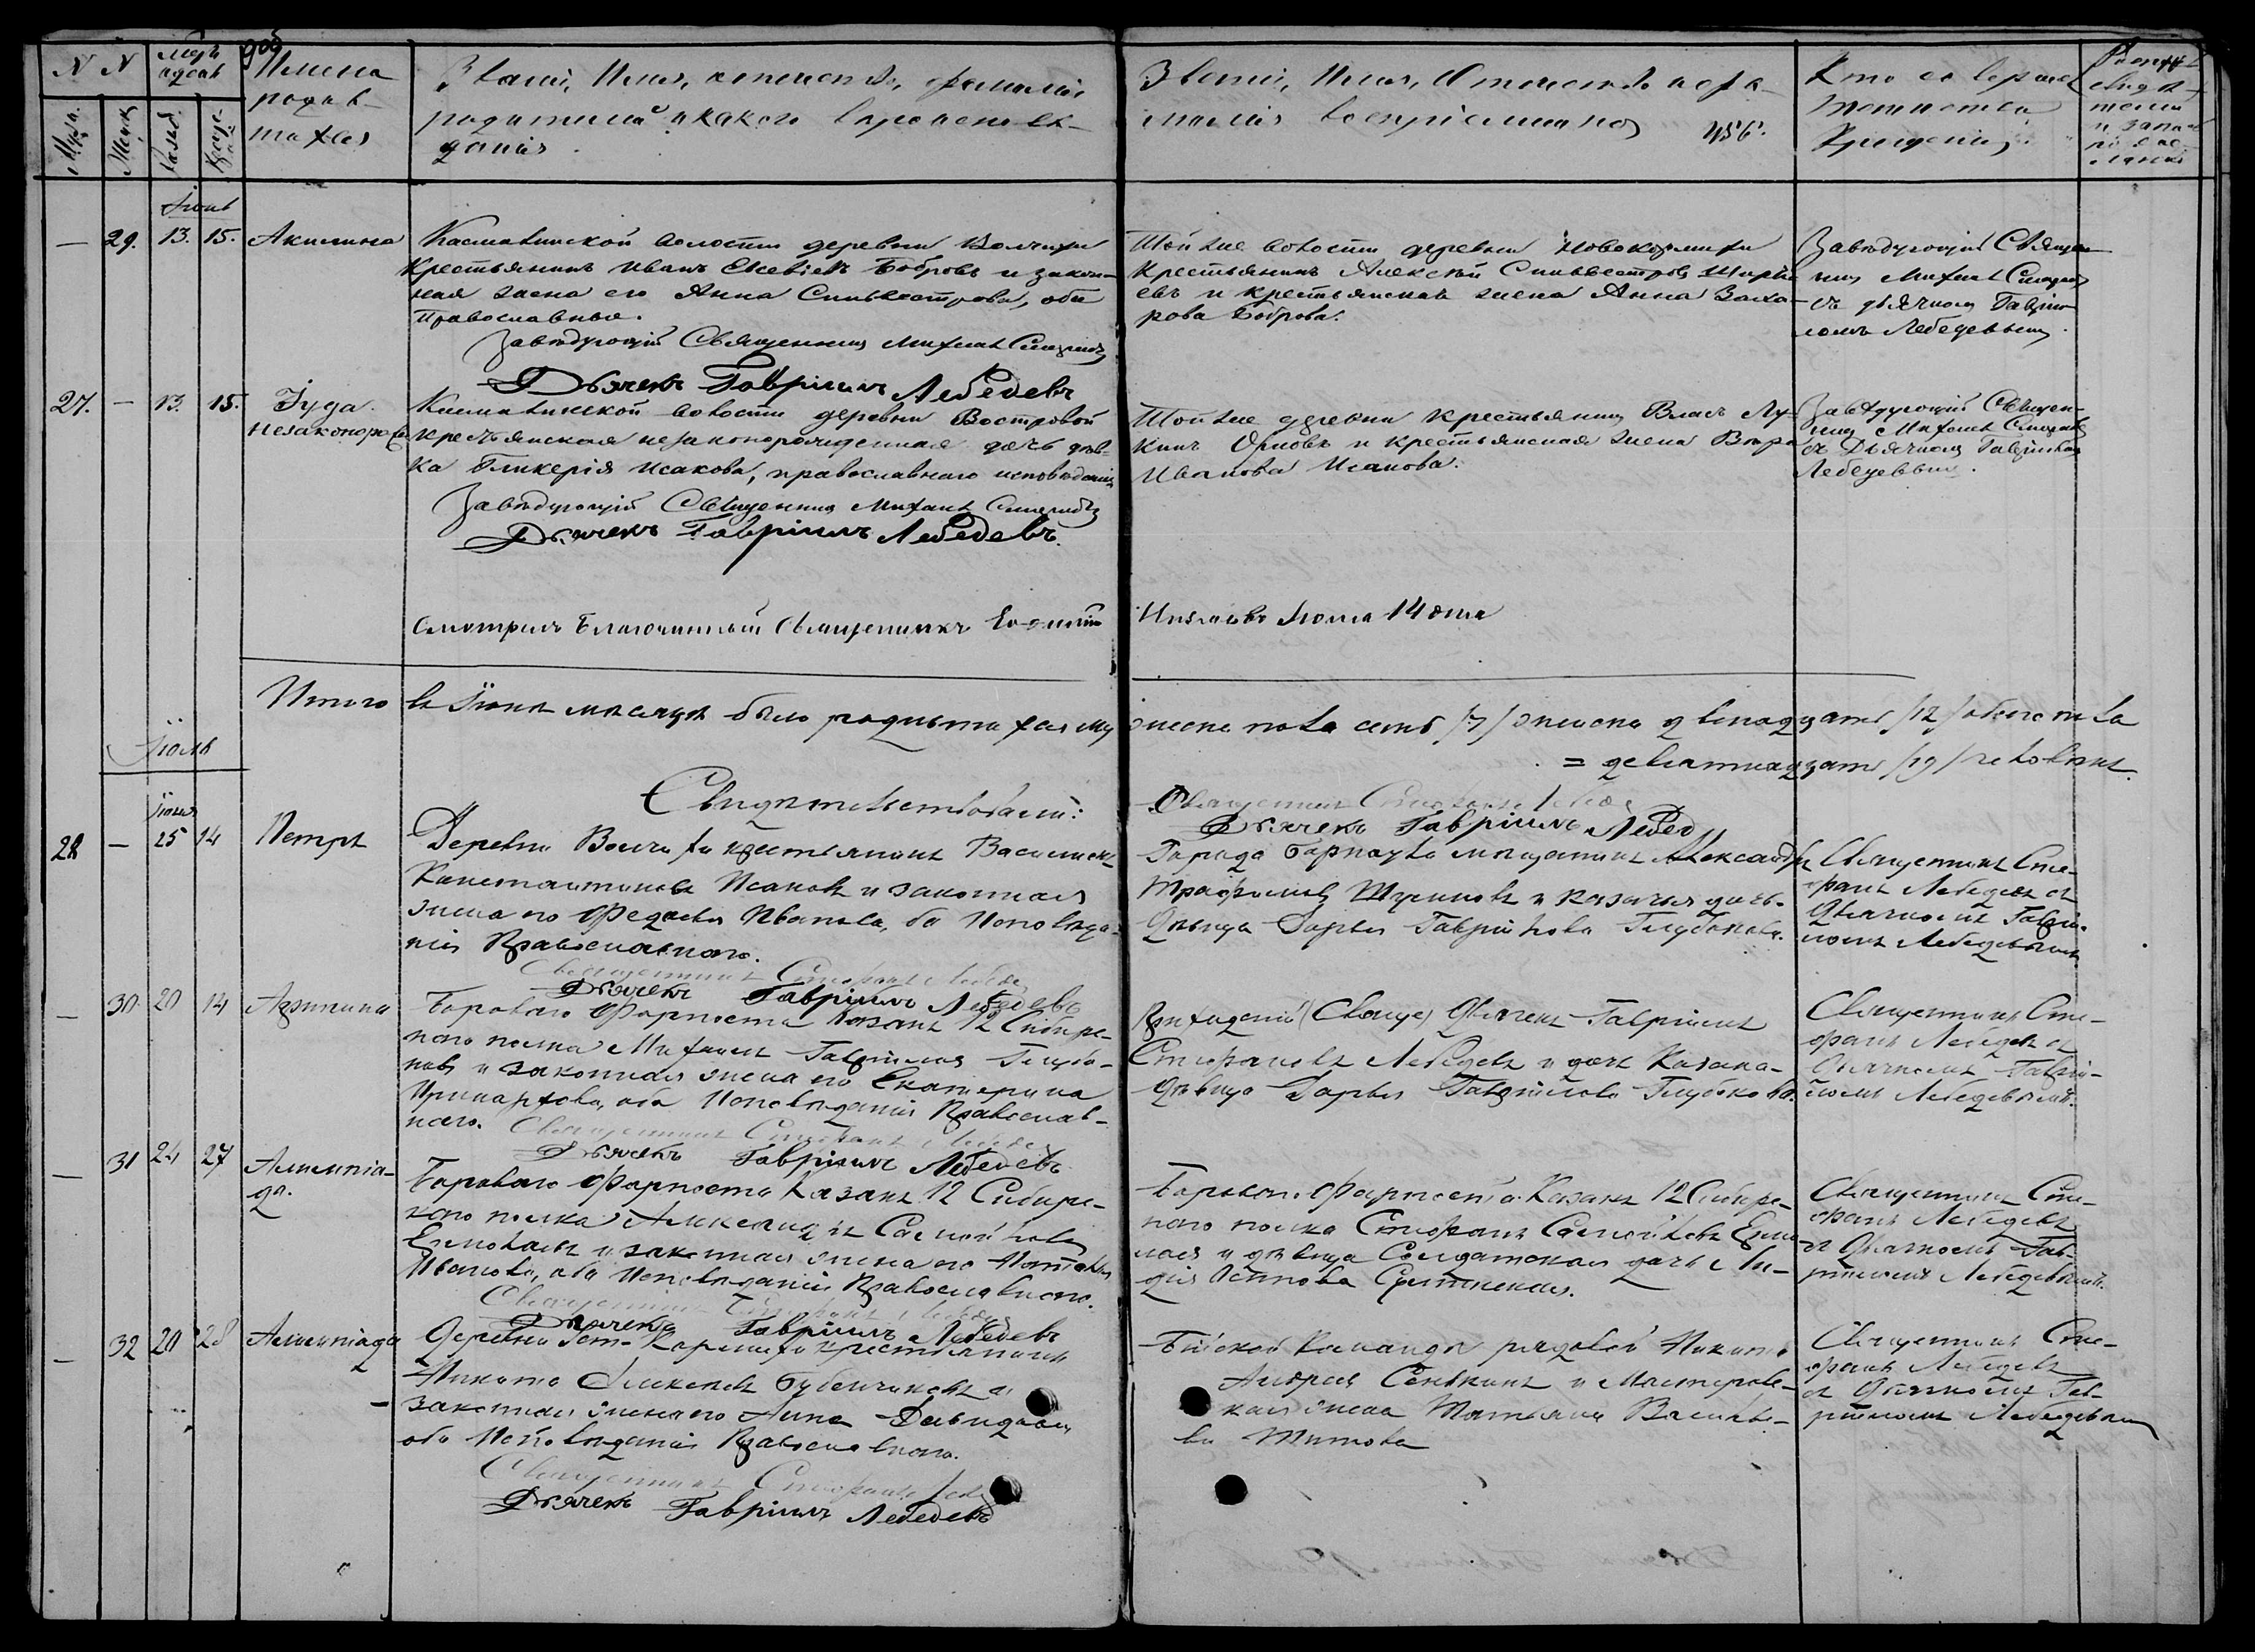 N N
Мужс.
Женск
Имена
родив-
шихся
Званiе, Имя, отчество, фамилiя
родителей и какого вероисповѣ-
данiя.
Званiе, Имя, Отчество и фа-
милiя воспрiемниковъ
Кто совершалъ
таинство
Крещенiя.
Iюнь
— 29. 13. 15. Акилина
Касмалинской волости деревни Волчихи
крестьянинъ Иванъ Бобровъ и закон-
ная жена его Анна Сильвестрова, оба
православные.
Завѣдующiй Священникъ Михаилъ
Дьячекъ Гаврiилъ Лебедевъ
Той же волости деревни Новокормихи
Крестьянинъ Алексѣй Сильвестровъ
евъ и крестьянская жена Анна Заха-
рова Боброва.
Завѣдующiй Священ-
никъ Михаилъ
съ дьячкомъ Гаврiи-
ломъ Лебедевымъ.
27. — 13. 15. Iуда
незаконорож
Касмалинской волости деревни Вострово̆й
крестьянская незаконорожденная дочь дѣв-
ка Гликерiя Исакова, православнаго исповѣданiя
Завѣдующiй Священникъ Михаилъ
Дьячекъ Гаврiилъ Лебедевъ.
Той же деревни крестьянинъ Власъ Лу-
кинъ Орловъ и крестьянская жена Вѣра
Иванова Исакова.
Завѣдующiй Священ-
никъ Михаилъ
съ Дьячкомъ Гаврiиломъ
Лебедевымъ.
Смотрилъ Благочинный Священникъ
Iюля 14 дня
Итого въ Iюнѣ мѣсяцѣ было родившихся му
жеска пола семь /7/ женска двенадцать /12/ обоего пола
= девятнадцать /19/ человѣкъ.
Iюль
Свидѣтельствовали:
Священникъ Стефанъ
Дьячекъ Гаврiилъ Лебед
Iюня
28 — 25 14 Петръ
Деревни Волчихи крестьянинъ Василискъ
Константиновъ Исаковъ и законная
жена его Федосья Иванова, оба Исповѣда-
нiя Православнаго.
Священникъ Стефанъ Лебеде
Дьячекъ Гаврiилъ Лебедевъ
Города Барнаула мѣщанинъ Александръ
Трофимовъ и казачья дочь
дѣвица Дарья Гаврiилова Глубокова.
Священникъ Сте-
фанъ Лебедевъ съ
Дьячкомъ Гаврiи-
ломъ Лебедевымъ
— 30 20 14 Агрипина
Бороваго Форпоста Казакъ 12 Сибирс-
каго полка Михаилъ Гаврiиловъ Глубо-
ковъ и законная жена его Екатерина
Принархова, оба Исповѣданiя Православ-
наго. Священникъ Стефанъ Лебеде
Дьячекъ Гаврiилъ Лебедевъ
Дьячекъ Гаврiилъ
Стефановъ Лебедевъ и дочь Казака
дѣвица Дарья Гаврiилова Глубокова.
Священникъ Сте-
фанъ Лебедевъ съ
Дьячкомъ Гаврiи-
ломъ Лебедевымъ.
— 31 24 27 Алимпiа-
да.
Бороваго Форпоста Казакъ 12 Сибирс-
каго полка Александръ Самойловъ
Ермолаевъ и законная жена его Наталья
Иванова, оба Исповѣданiя Православнаго.
Священникъ Стефанъ
Дьячекъ Гаврiилъ Лебедевъ
Бороваго Форпоста Казакъ 12 Сибирс-
каго полка Стефанъ Самойловъ Ермо
лаевъ и дѣвица Солдатская дочь Ли-
дiя Осипова
Священникъ Сте-
фанъ Лебедевъ
съ Дьячкомъ Гав-
рiиломъ Лебедевымъ.
— 32 20 28 Алимпiада
Деревни Кормихи крестьянинъ
Никита Алексѣевъ Бубенчиковъ и
законная жена его Анна Давидова,
оба Исповѣданiя Православнаго.
Священникъ Стефанъ
Дьячекъ Гаврiилъ Лебедевъ
Бiйской Команды рядовой Никита
Андреевъ Сенькинъ и Мастеровс-
кая жена Татьяна Василье-
ва Титова
Священникъ Сте-
фанъ Лебедевъ
съ Дьячкомъ Гав-
рiиломъ Лебедевымъ